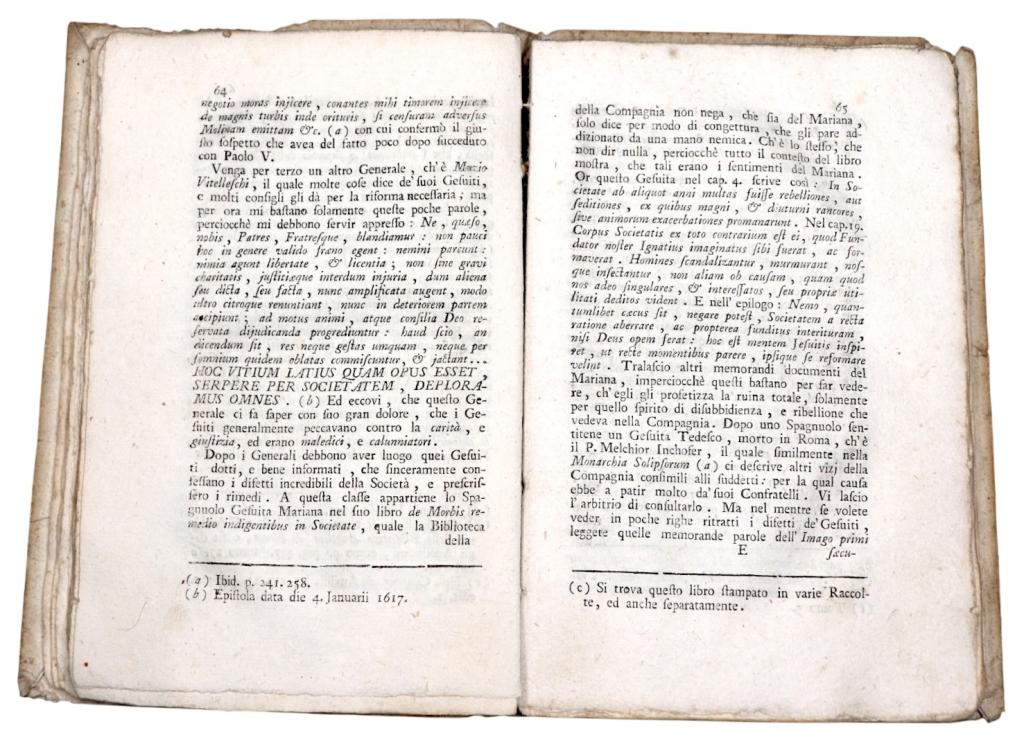 64
negotio moras injicere , conantes mihi timorem injicere
de magnis turbis inde orituris , ſi cenſuram adverſus
Molinam emittam &c. (a) con cui confermò il giu-
ſto ſoſpetto che avea del fatto poco dopo ſucceduto
con Paolo V.
Venga per terzo un altro Generale , ch'è Muzio
Vitelleſchi , il quale molte coſe dice de' ſuoi Geſuiti,
e molti conſigli gli dà per la riforma neceſſaria ; ma
per ora mi baſtano ſolamente queſte poche parole ,
perciocchè mi debbono ſervir appreſſo : Ne , quæſo,
nobis , Patres , Fratreſque , blandiamur : non pauci
hoc in genere valido fræno egent : nemini parcunt :
nimia agunt libertate , & licentia ; non ſine gravi
charitatis , juſtitiæque interdum injuria , dum aliena
ſeu dicta , ſeu facta , nunc amplificata augent , modo
ultro citroque renuntiant , nunc in deteriorem partem
accipiunt ; ad motus animi , atque conſilia Deo re-
ſervata dijudicanda progrediuntur : haud ſcio , an
dicendum ſit , res neque geſtas umquam , neque per
ſomnium quidem oblatas commiſcuntur, & jactant ...
HOC VITIUM LATIUS QUAM OPUS ESSET ,
SERPERE PER SOCIETATEM , DEPLORA-
MUS OMNES . (b) Ed eccovi , che queſto Ge-
nerale ci fa ſaper con ſuo gran dolore , che i Ge-
ſuiti generalmente peccavano contro la carità , e
giuſtizia, ed erano maledici, e calunniatori.
Dopo i Generali debbono aver luogo quei Geſui-
ti dotti, e bene informati , che ſinceramente con-
feſſano i difetti incredibili della Società , e preſcriſ-
ſero i rimedi . A queſta claſſe appartiene lo Spa-
gnuolo Geſuita Mariana nel ſuo libro de Morbis re-
medio indigentibus in Societate , quale la Biblioteca
della
(a) Ibid. p. 241. 258.
(b) Epiſtola data die 4. Januarii 1617.
65
della Compagnia non nega , che ſia del Mariana ,
ſolo dice per modo di congettura , che gli pare ad-
dizionato da una mano nemica. Ch'è lo ſteſſo ; che
non dir nulla , perciocchè tutto il conteſto del libro
moſtra , che tali erano i ſentimenti del Mariana .
Or queſto Geſuita nel cap. 4. ſcrive così : In So-
cietate ab aliquot anni multas fuiſſe rebelliones , aut
ſeditiones , ex quibus magni , & diuturni rancores ,
ſive animorum exacerbationes promanarunt. Nel cap.19.
Corpus Societatis ex toto contrarium eſt ei, quod Fun-
dator noſter Ignatius imaginatus ſibi fuerat , ac for-
maverat . Homines ſcandalizantur , murmurant , noſ-
que inſectantur , non aliam ob cauſam , quam quod
nos adeo ſingulares , & intereſſatos , ſeu propriæ uti-
litati deditos vident . E nell' epilogo : Nemo , quan-
tumlibet cæcus ſit , negare poteſt , Societatem a recta
ratione aberrare , ac propterea funditus interituram ,
niſi Deus opem ferat : hoc eſt mentem Jeſuitis inſpi-
ret , ut recte momentibus parere , ipſique ſe reformare
velint . Tralaſcio altri memorandi documenti del
Mariana , imperciocchè queſti baſtano per far vede-
re , ch' egli gli profetizza la ruina totale, ſolamente
per quello ſpirito di diſubbidienza , e ribellione che
vedeva nella Compagnia. Dopo uno Spagnuolo ſen-
titene un Geſuita Tedeſco , morto in Roma , ch'è
il P. Melchior Inchofer , il quale ſimilmente nella
Monarchia Solipſorum (a) ci deſcrive altri vizj della
Compagnia conſimili alli ſuddetti : per la qual cauſa
ebbe a patir molto da' ſuoi Confratelli . Vi laſcio
l' arbitrio di conſultarlo . Ma nel mentre ſe volete
veder in poche righe ritratti i difetti de' Geſuiti ,
leggete quelle memorande parole dell' Imago primi
E ſæcu-
(c) Si trova queſto libro ſtampato in varie Raccol-
te, ed anche ſeparatamente.